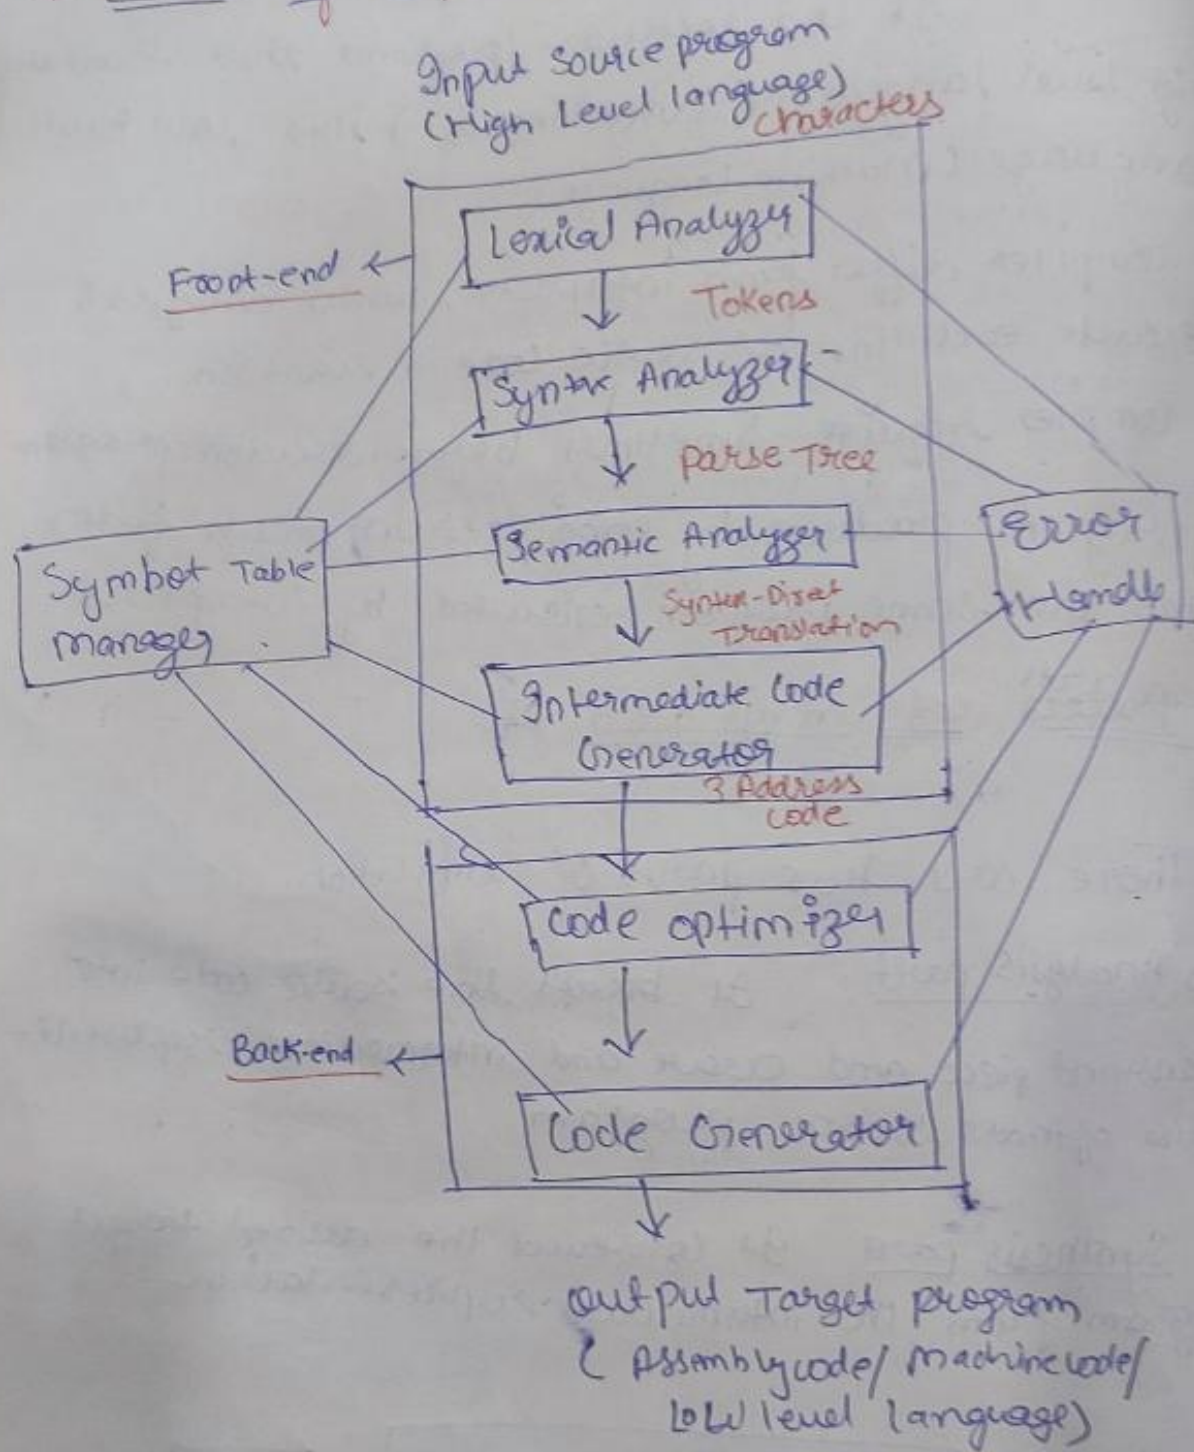 Input Source program
(High Level language)
characters
Lexical Analyzer
Front-end
Tokens
Syntax Analyzer
parse Tree
Semantic Analyzer
Error
Handle
Symbol Table
manager
Syntax-Direct
Translation
Intermediate Code
Generator
3 Address
code
Code optimizer
Back-end
Code Generator
output Target program
( Assembly code/ Machine code/
Low level language)